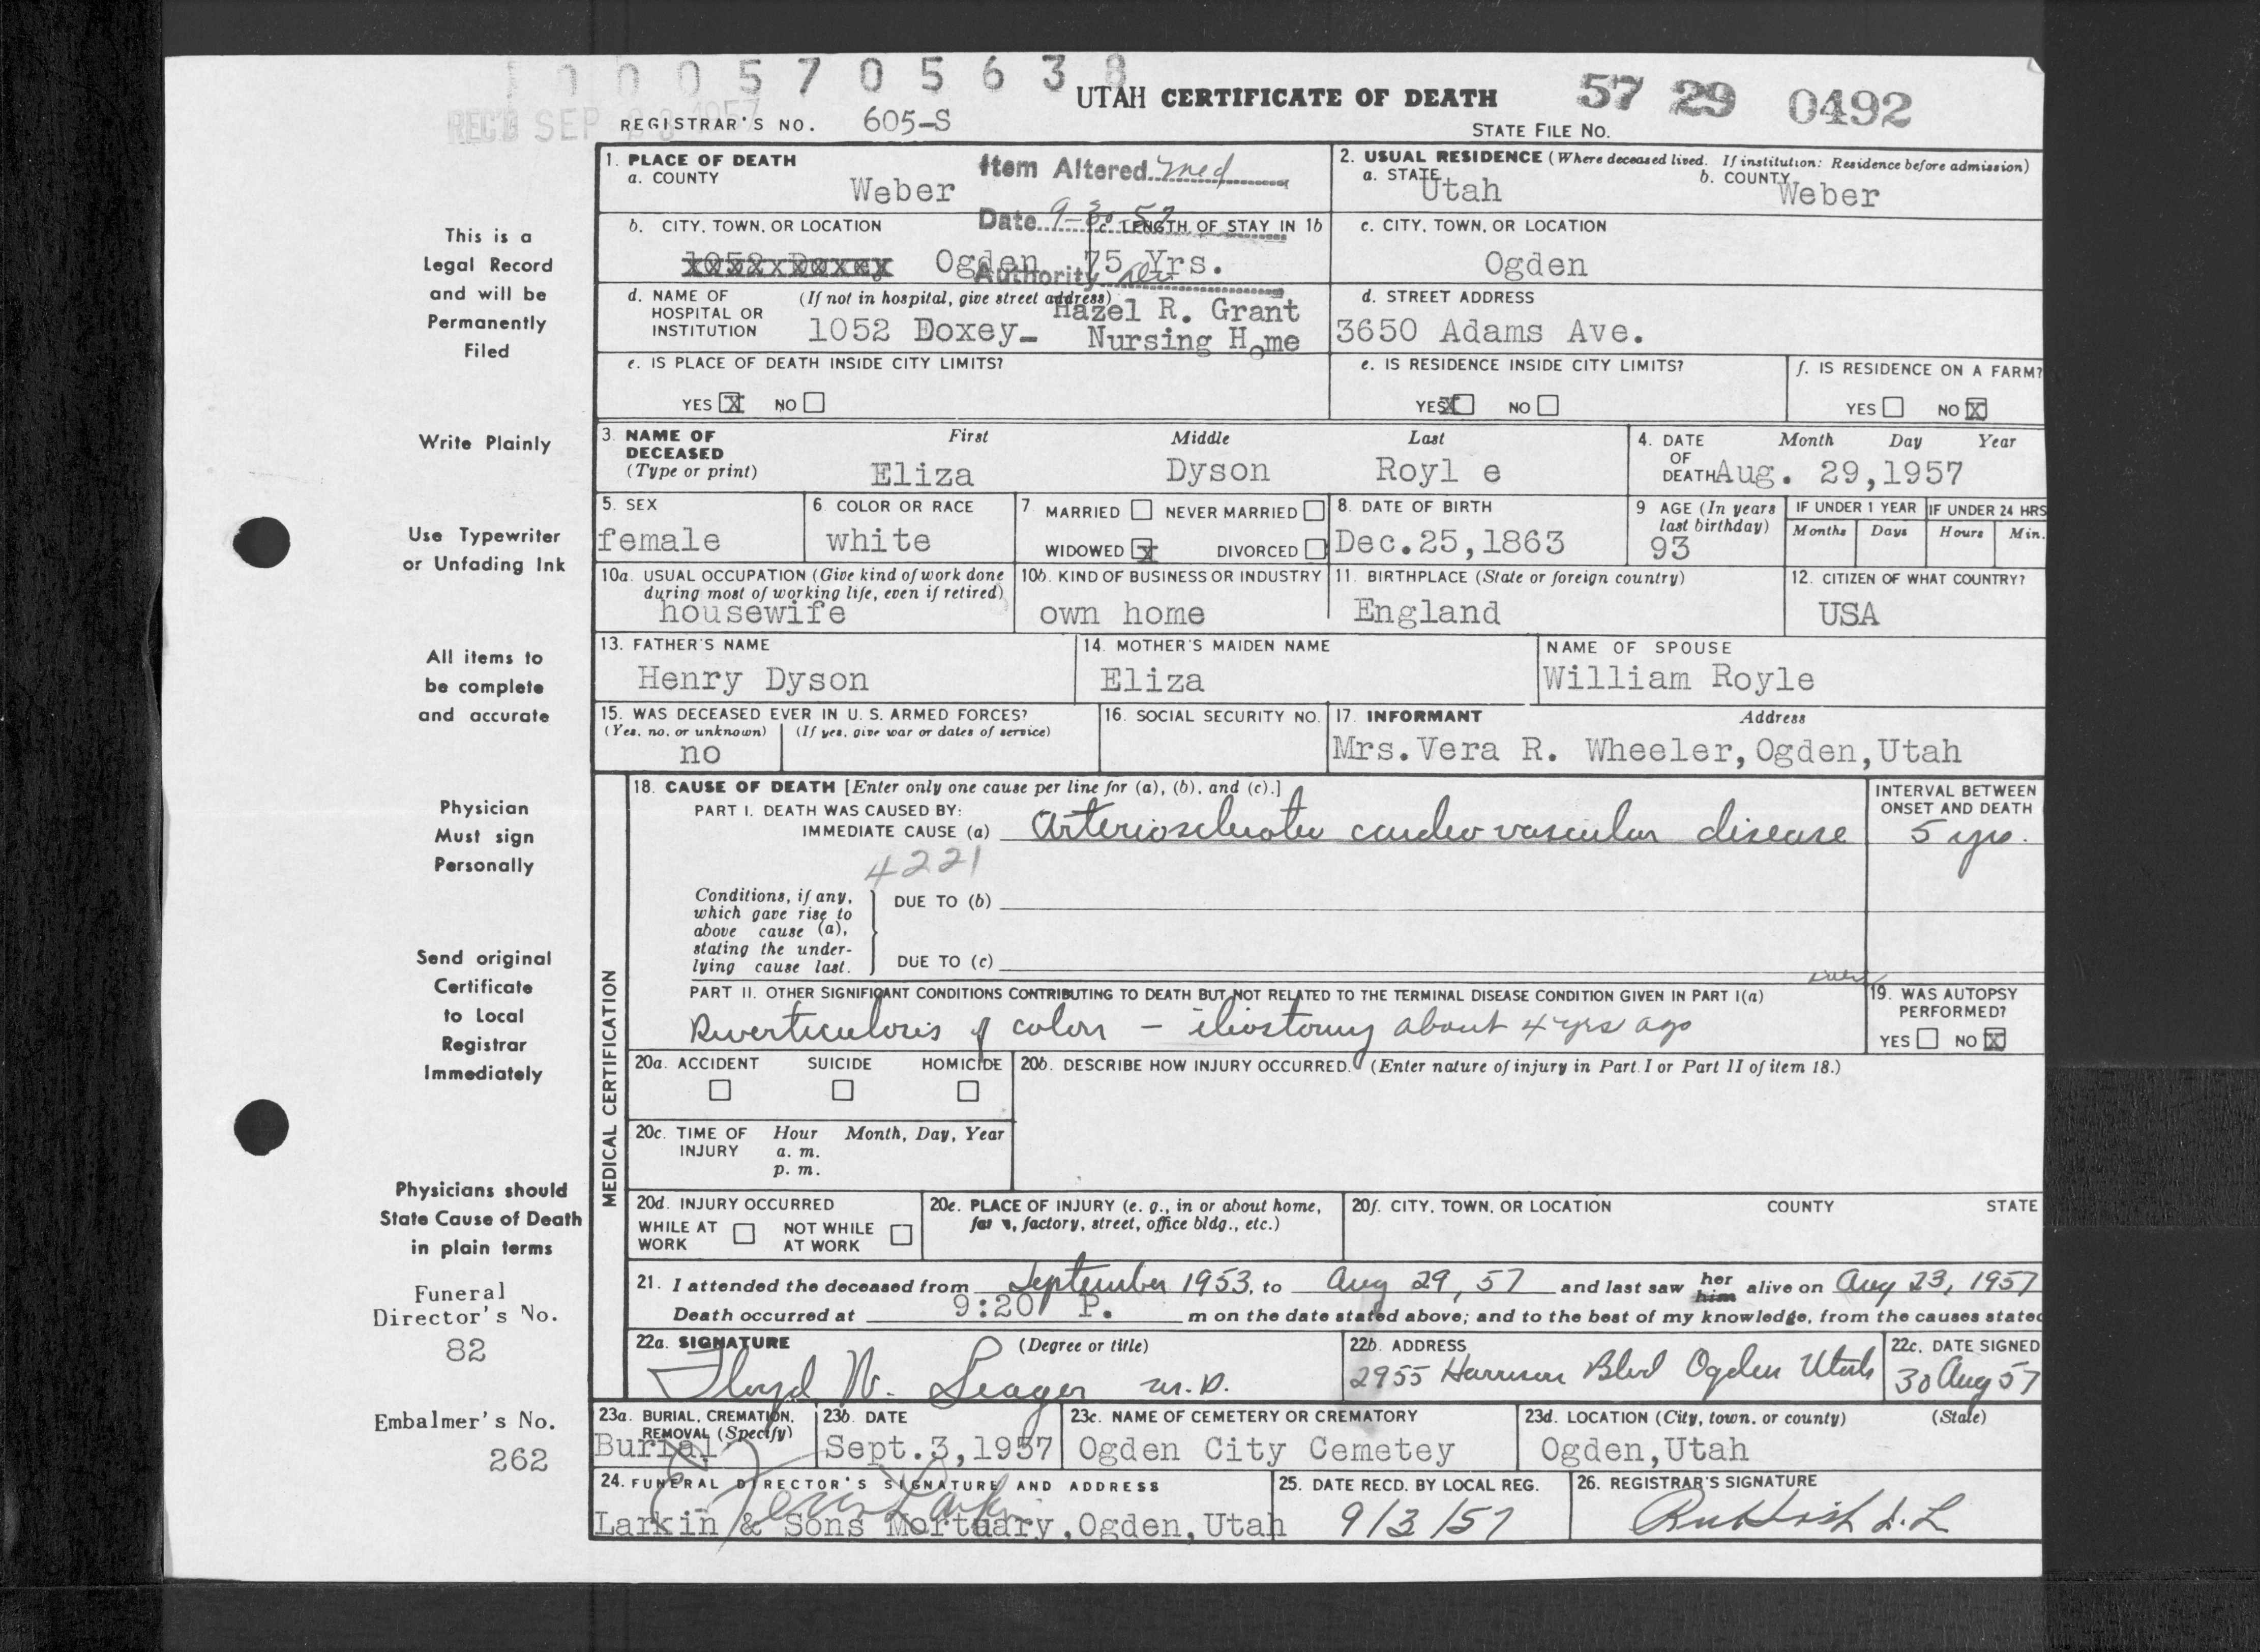 1 0 0 0 5 7 0 5 6 3 8
UTAH CERTIFICATE OF DEATH
57 29 0492
REC'D SEP 1957
REGISTRAR'S NO. 605-S
STATE FILE NO.
1. PLACE OF DEATH
a. COUNTY
Weber
Item Altered med
2. USUAL RESIDENCE (Where deceased lived. If institution: Residence before admission)
a. STATE Utah
b. COUNTY Weber
b. CITY, TOWN, OR LOCATION
1052 Doxey Ogden
Date 9-30-57
c. LENGTH OF STAY IN 1b
75 Yrs.
Authority
c. CITY, TOWN, OR LOCATION
Ogden
d. NAME OF HOSPITAL OR INSTITUTION
(If not in hospital, give street address)
1052 Doxey- Hazel R. Grant
Nursing Home
d. STREET ADDRESS
3650 Adams Ave.
e. IS PLACE OF DEATH INSIDE CITY LIMITS?
YES X NO
e. IS RESIDENCE INSIDE CITY LIMITS?
YES X NO
f. IS RESIDENCE ON A FARM?
YES NO X
3. NAME OF DECEASED
(Type or print)
First Middle Last
Eliza Dyson Royl e
4. DATE OF DEATH
Month Day Year
Aug. 29,1957
5. SEX
female
6 COLOR OR RACE
white
7 MARRIED NEVER MARRIED
WIDOWED X DIVORCED
8. DATE OF BIRTH
Dec.25,1863
9 AGE (In years last birthday)
93
IF UNDER 1 YEAR
Months Days
IF UNDER 24 HRS
Hours Min.
10a. USUAL OCCUPATION (Give kind of work done during most of working life, even if retired)
housewife
10b. KIND OF BUSINESS OR INDUSTRY
own home
11. BIRTHPLACE (State or foreign country)
England
12. CITIZEN OF WHAT COUNTRY?
USA
13. FATHER'S NAME
Henry Dyson
14. MOTHER'S MAIDEN NAME
Eliza
NAME OF SPOUSE
William Royle
15. WAS DECEASED EVER IN U. S. ARMED FORCES?
(Yes, no, or unknown) (If yes, give war or dates of service)
no
16. SOCIAL SECURITY NO.
17. INFORMANT Address
Mrs.Vera R. Wheeler,Ogden,Utah
MEDICAL CERTIFICATION
18. CAUSE OF DEATH [Enter only one cause per line for (a), (b), and (c).]
PART I. DEATH WAS CAUSED BY:
IMMEDIATE CAUSE (a) Arteriosclerotic cardio vascular disease
INTERVAL BETWEEN ONSET AND DEATH
5 yrs.
4221
Conditions, if any, which gave rise to above cause (a), stating the underlying cause last.
DUE TO (b)
DUE TO (c)
PART II. OTHER SIGNIFICANT CONDITIONS CONTRIBUTING TO DEATH BUT NOT RELATED TO THE TERMINAL DISEASE CONDITION GIVEN IN PART I(a)
Diverticulosis of colon - iliostomy about 4 yrs ago
19. WAS AUTOPSY PERFORMED?
YES NO X
20a. ACCIDENT SUICIDE HOMICIDE
20b. DESCRIBE HOW INJURY OCCURRED. (Enter nature of injury in Part I or Part II of item 18.)
20c. TIME OF INJURY
Hour Month, Day, Year
a. m.
p. m.
20d. INJURY OCCURRED
WHILE AT WORK NOT WHILE AT WORK
20e. PLACE OF INJURY (e. g., in or about home, farm, factory, street, office bldg., etc.)
20f. CITY, TOWN, OR LOCATION COUNTY STATE
21. I attended the deceased from September 1953, to Aug 29, 57 and last saw her him alive on Aug 23, 1957
Death occurred at 9:20 P. m on the date stated above; and to the best of my knowledge, from the causes stated
22a. SIGNATURE (Degree or title)
Floyd W. Seager M.D.
22b. ADDRESS
2955 Harrison Blvd Ogden Utah
22c. DATE SIGNED
30 Aug 57
23a. BURIAL, CREMATION, REMOVAL (Specify)
Burial
23b. DATE
Sept.3,1957
23c. NAME OF CEMETERY OR CREMATORY
Ogden City Cemetey
23d. LOCATION (City, town, or county) (State)
Ogden,Utah
24. FUNERAL DIRECTOR'S SIGNATURE AND ADDRESS
Larkin & Sons Mortuary,Ogden,Utah
25. DATE RECD. BY LOCAL REG.
9/3/57
26. REGISTRAR'S SIGNATURE
This is a
Legal Record
and will be
Permanently
Filed
Write Plainly
Use Typewriter
or Unfading Ink
All items to
be complete
and accurate
Physician
Must sign
Personally
Send original
Certificate
to Local
Registrar
Immediately
Physicians should
State Cause of Death
in plain terms
Funeral
Director's No.
82
Embalmer's No.
262